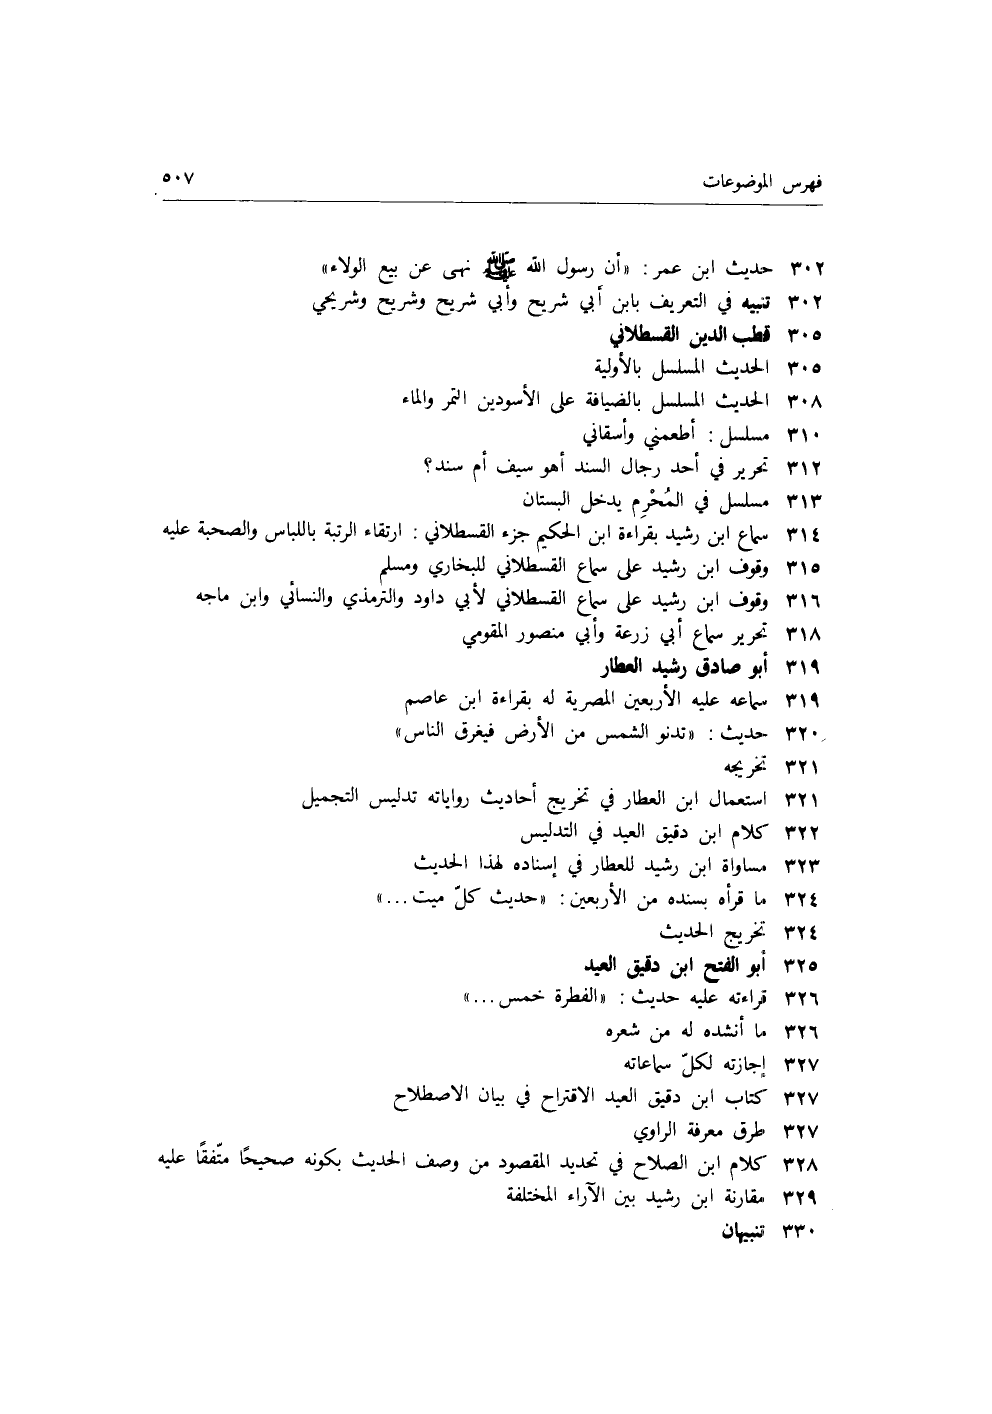 فهرس الموضوعات ٥٠٧
٣٠٢ حديث ابن عمر : «أن رسول الله ﷺ نهى عن بيع الولاء»
٣٠٢ تنبيه في التعريف بابن أبي شريح وأبي شريح وشريح وشريحي
٣٠٥ قطب الدين القسطلاني
٣٠٥ الحديث المسلسل بالأولية
٣٠٨ الحديث المسلسل بالضيافة على الأسودين التمر والماء
٣١٠ مسلسل : أطعمني وأسقاني
٣١٢ تحرير في أحد رجال السند أهو سيف أم سند؟
٣١٣ مسلسل في المُحْرِم يدخل البستان
٣١٤ سماع ابن رشيد بقراءة ابن الحكيم جزء القسطلاني : ارتقاء الرتبة باللباس والصحبة عليه
٣١٥ وقوف ابن رشيد على سماع القسطلاني للبخاري ومسلم
٣١٦ وقوف ابن رشيد على سماع القسطلاني لأبي داود والترمذي والنسائي وابن ماجه
٣١٨ تحرير سماع أبي زرعة وأبي منصور المقومي
٣١٩ أبو صادق رشيد العطار
٣١٩ سماعه عليه الأربعين المصرية له بقراءة ابن عاصم
٣٢٠ حديث : «تدنو الشمس من الأرض فيغرق الناس»
٣٢١ تخريجه
٣٢١ استعمال ابن العطار في تخريج أحاديث رواياته تدليس التجميل
٣٢٢ كلام ابن دقيق العيد في التدليس
٣٢٣ مساواة ابن رشيد للعطار في إسناده لهذا الحديث
٣٢٤ ما قرأه بسنده من الأربعين: «حديث كلّ ميت...»
٣٢٤ تخريج الحديث
٣٢٥ أبو الفتح ابن دقيق العيد
٣٢٦ قراءته عليه حديث : «الفطرة خمس...»
٣٢٦ ما أنشده له من شعره
٣٢٧ إجازته لكلّ سماعاته
٣٢٧ كتاب ابن دقيق العيد الاقتراح في بيان الاصطلاح
٣٢٧ طرق معرفة الراوي
٣٢٨ كلام ابن الصلاح في تحديد المقصود من وصف الحديث بكونه صحيحًا متّفقًا عليه
٣٢٩ مقارنة ابن رشيد بين الآراء المختلفة
٣٣٠ تنبيهان